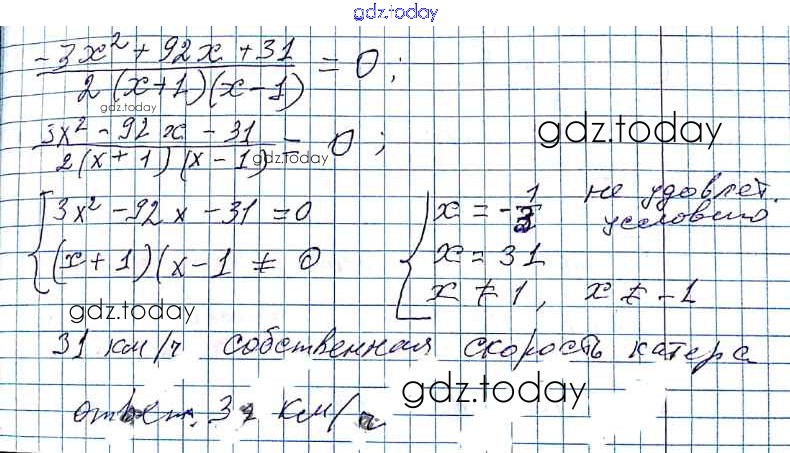 gdz.today
-3x² + 92x + 31 / 2(x+1)(x-1) = 0;
gdz.today
3x² - 92x - 31 / 2(x+1)(x-1) = 0;
gdz.today
gdz.today
{ 3x² - 92x - 31 = 0
(x+1)(x-1 ≠ 0
[ { x = -1/3 не удовлет. условию
x = 31
x ≠ 1, x ≠ -1
gdz.today
31 км/ч собственная скорость катера
gdz.today
ответ. 31 км/ч